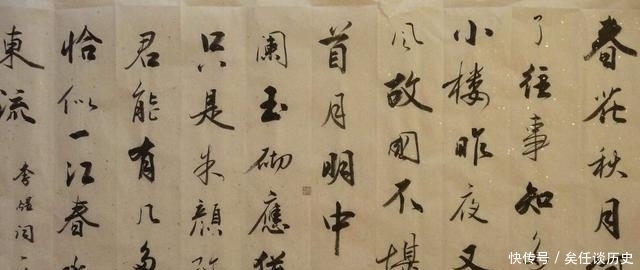 春花秋月
了往事知多
小楼昨夜又
风故國不堪
首月明中
阑玉砌應猶
只是朱颜改
君能有几多
恰似一江春水
東流
李煜词一
快传号／矣任谈历史